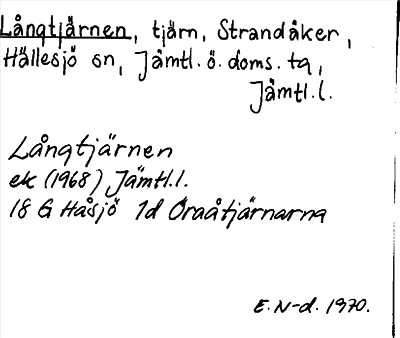 Långtjärnen, tjärn, Strandåker,
Hällesjö sn, Jämtl. ö. doms. tg,
Jämtl. l.
Långtjärnen
ek (1968) Jämtl. l.
18 G Håsjö 1d Öraåtjärnarna
E. N-d. 1970.